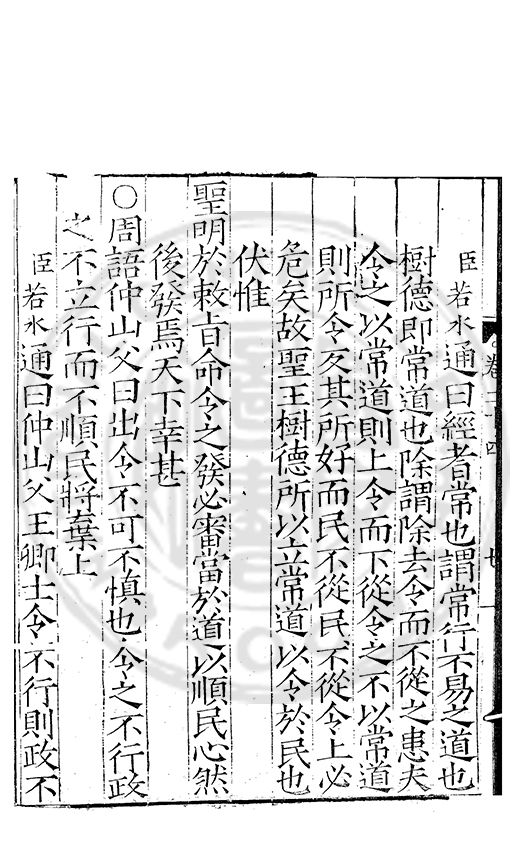 臣若水通曰經者常也謂常行不易之道也
樹德即常道也除謂除去令而不從之患夫
令之以常道則上令而下從令之不以常道
則所令反其所好而民不從民不從令上必
危矣故聖王樹德所以立常道以令於民也
伏惟
聖明於敕旨命令之發必審當於道以順民心然
後發焉天下幸甚
○周語仲山父曰出令不可不慎也令之不行政
之不立行而不順民將棄上
臣若水通曰仲山父王卿士令不行則政不